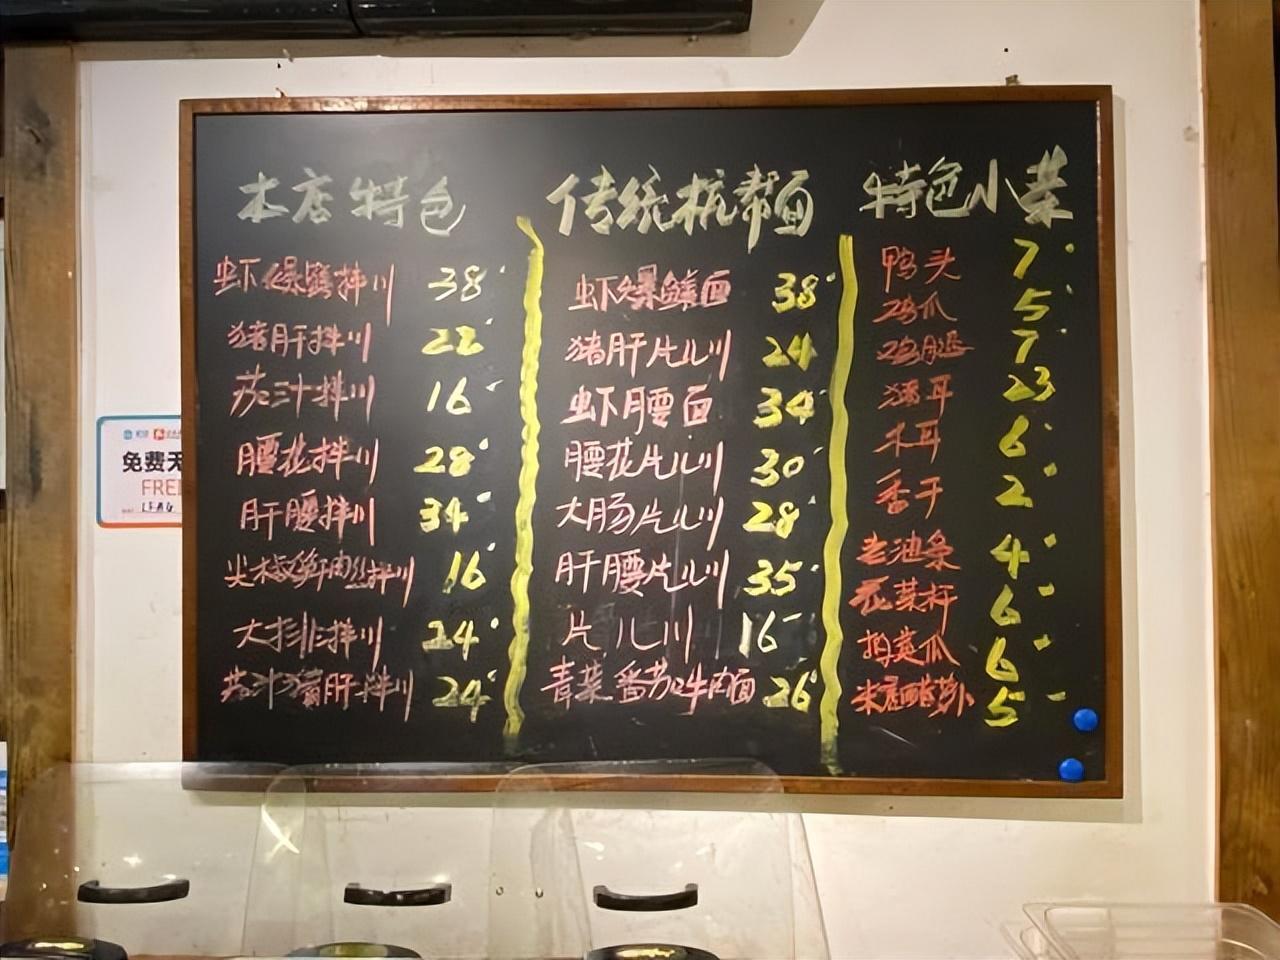 本店特色
虾爆鳝拌川 38
猪肝拌川 22
茄汁拌川 16
腰花拌川 28
肝腰拌川 34
尖椒笋干肉丝拌川 16
大排拌川 24
茄汁猪肝拌川 24
传统杭帮面
虾爆鳝面 38
猪肝片儿川 24
虾腰面 34
腰花片儿川 30
大肠片儿川 28
肝腰片儿川 35
片儿川 16
青菜番茄牛肉面 26
特色小菜
鸭头 7
鸡爪 5
鸡腿 7
猪耳 23
木耳 6
香干 2
老油条 4
花菜杆 6
拍黄瓜 6
米醋萝卜 5
免费无
FREE